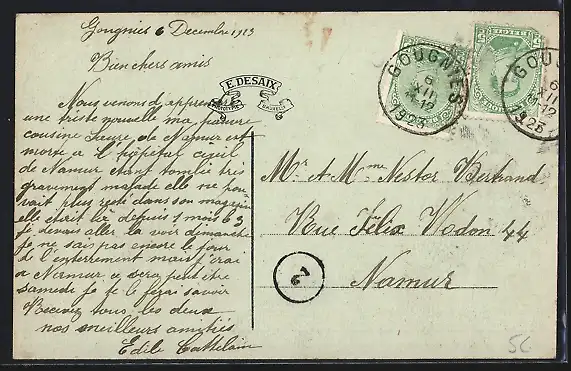 Gougnies 6 Decembre 1923
Bien chers amis
Nous venons d'apprendre
une triste nouvelle ma pauvre
cousine Laure de Namur est
morte a l'hôpital civil
de Namur etant tombée très
gravement malade elle ne pou
vait plus reste dans son magasin
elle etait la depuis 1 mois
je devais aller la voir dimanche
je ne sais pas encore le jour
de l'enterrement mais j'irai
a Namur ce sera peut être
samedi je le ferai savoir
Recevez tous les deux
nos meilleurs amitiés
Edile
E. DESAIX
GOUGNIES
6
XII
12
1923
GOU
6
XII
12
1923
Mr & Mme Nestor Bertrand
Rue Félix Wodon 44
Namur
12
5c